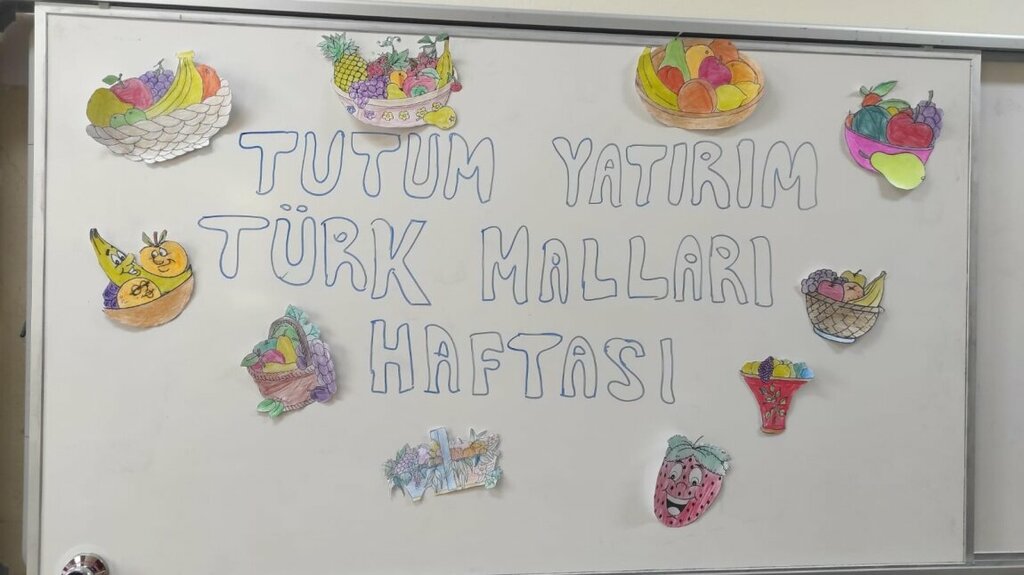 TUTUM YATIRIM
TÜRK MALLARI
HAFTASI